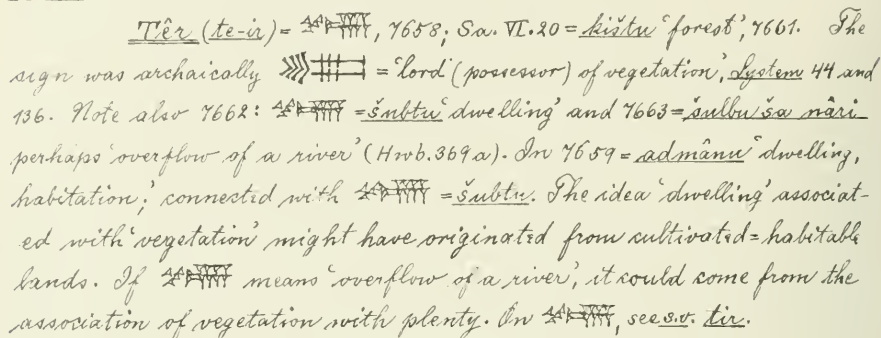 Têr (te-ir) = , 7658; Sa. VI. 20 = kištu 'forest', 7661. The
sign was archaically = 'lord (possessor) of vegetation', System 44 and
136. Note also 7662: = šubtu 'dwelling' and 7663 = šulbu ša nâri
perhaps 'overflow of a river' (Hwb. 369 a). In 7659 = admânu 'dwelling,
habitation;' connected with = šubtu. The idea 'dwelling' associat-
ed with 'vegetation' might have originated from cultivated = habitable
lands. If means 'overflow of a river', it could come from the
association of vegetation with plenty. On , see s.v. tir.